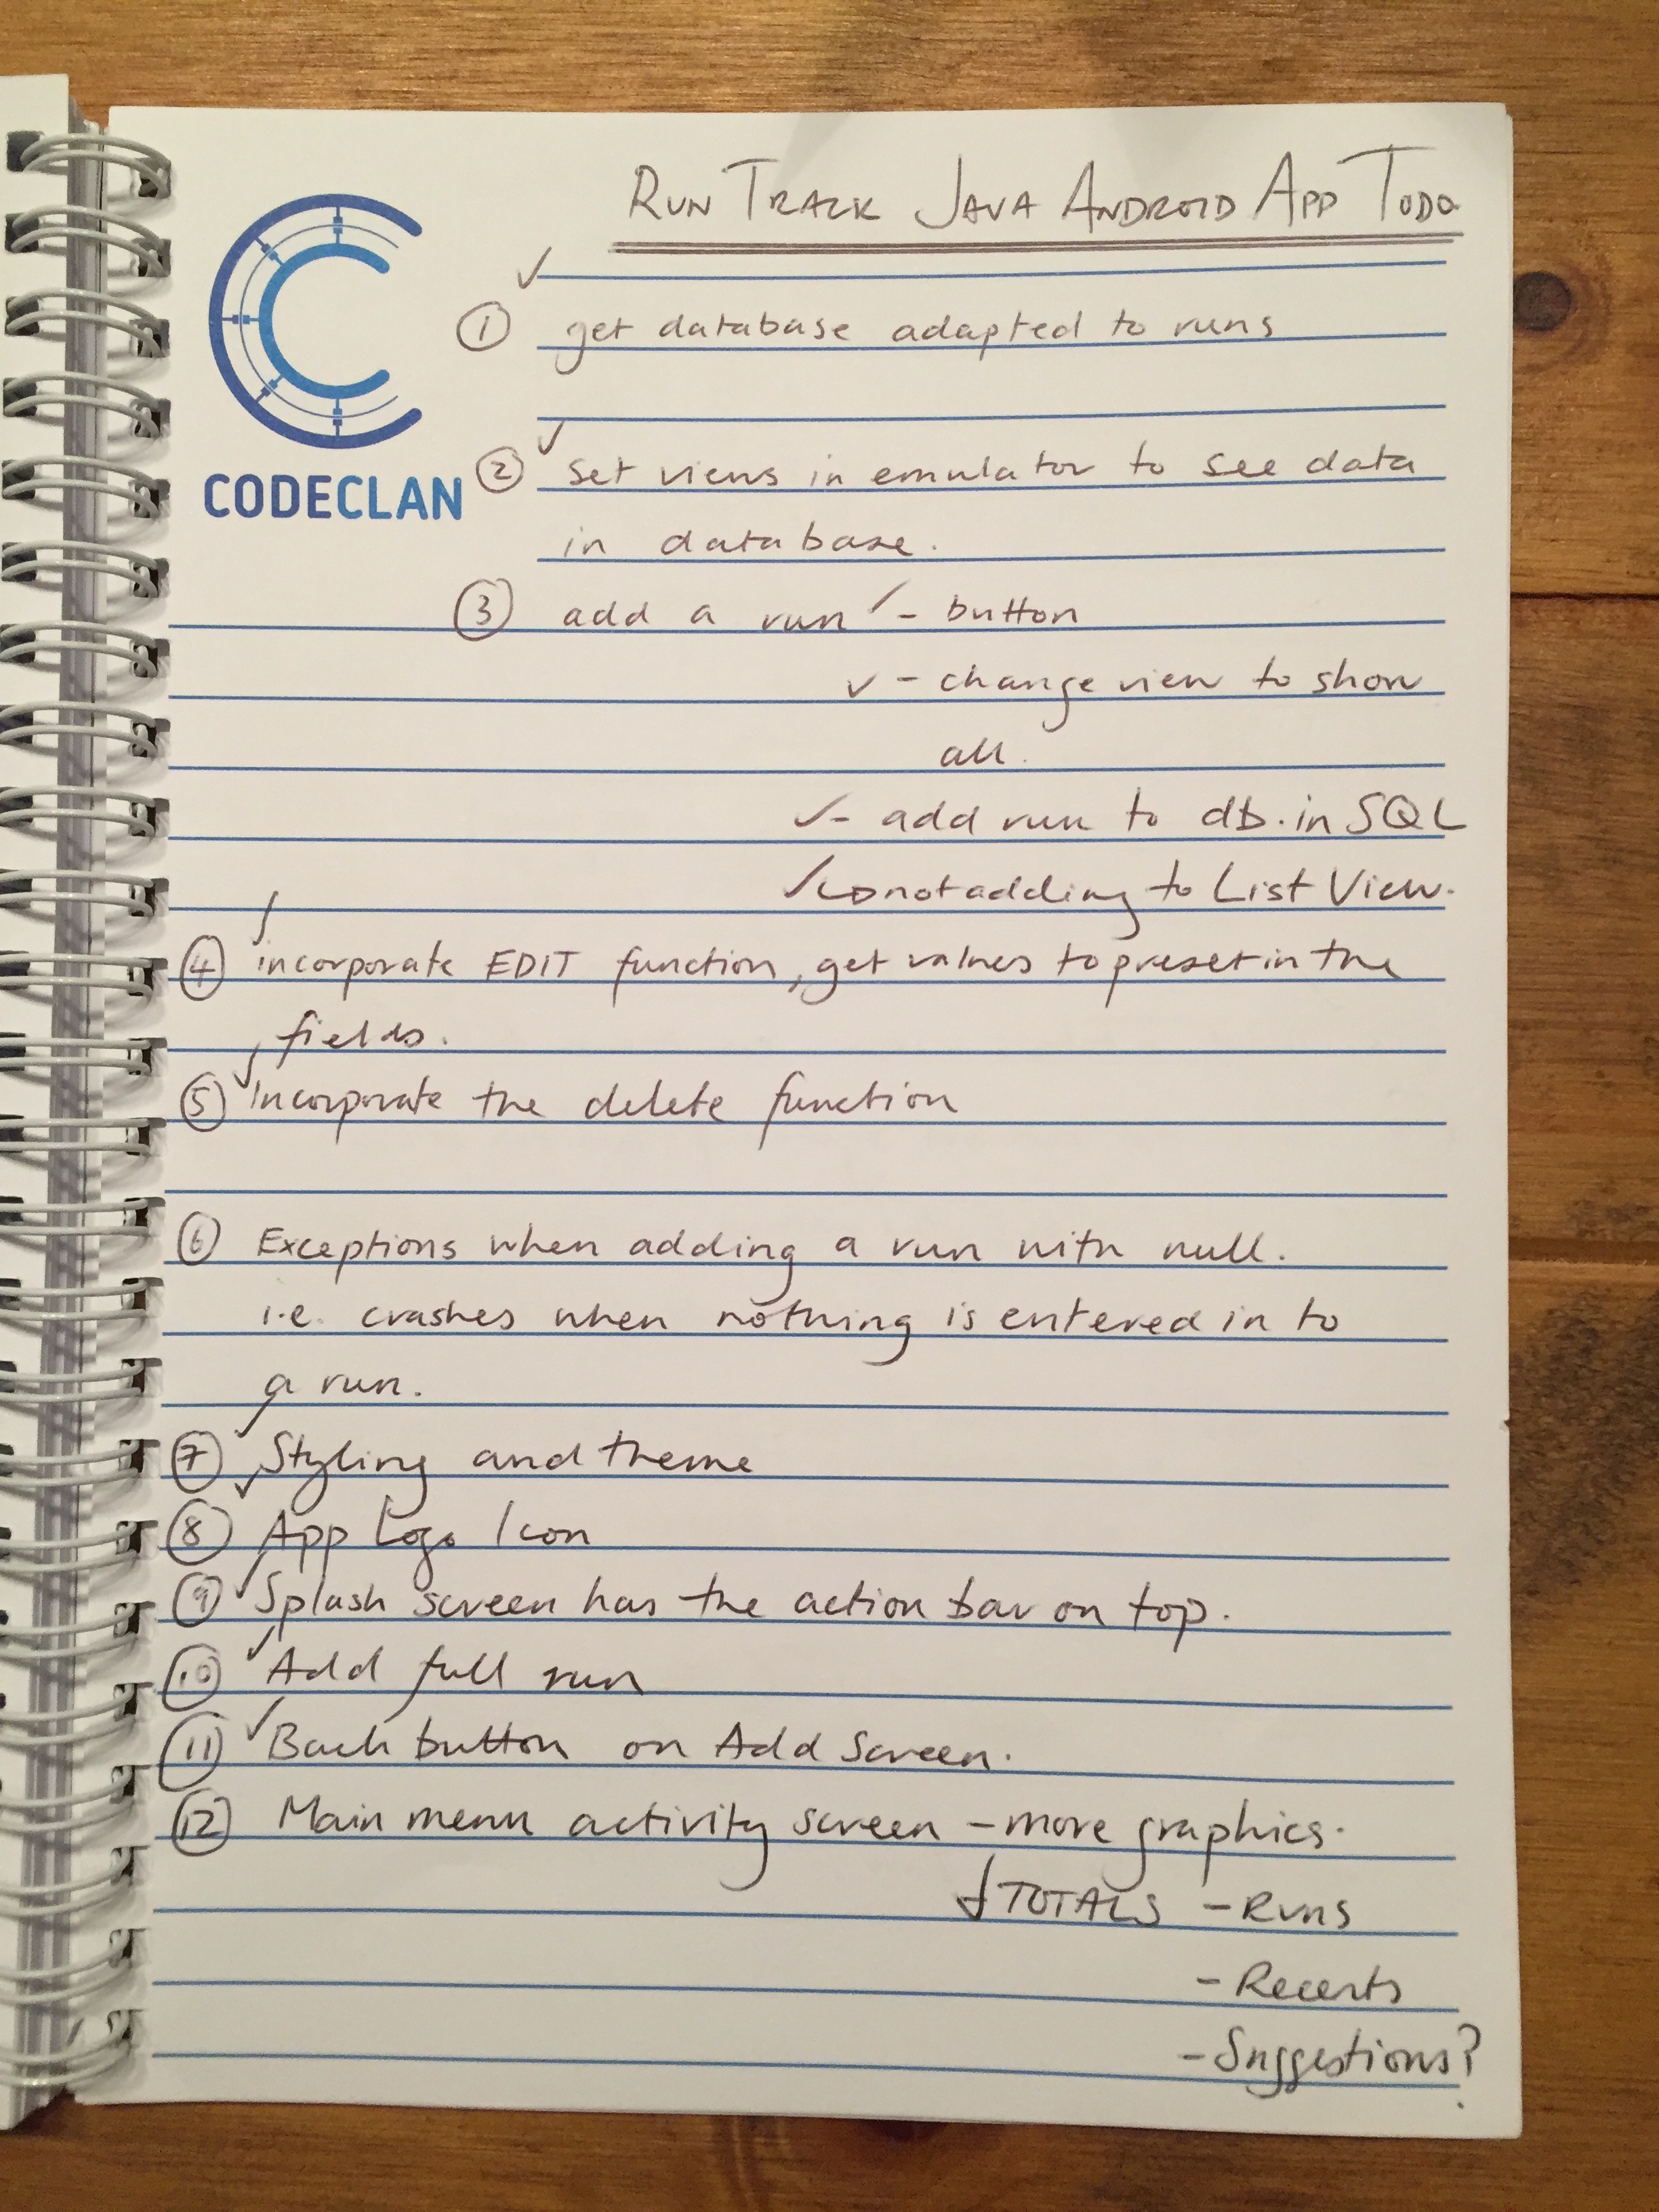 RUN TRACK JAVA ANDROID APP TODO
CODECLAN
✓
① get database adapted to runs
② ✓ set views in emulator to see data
in database.
③ add a run ✓ - button
✓ - change view to show
all.
✓ - add run to db. in SQL
✓ ↳ not adding to List View.
④ incorporate EDIT function, get values to preset in the
fields.
⑤ ✓ Incorporate the delete function
⑥ Exceptions when adding a run with null.
i.e. crashes when nothing is entered in to
a run.
⑦ ✓ Styling and theme
⑧ ✓ App Logo Icon
⑨ ✓ Splash screen has the action bar on top.
⑩ ✓ Add full run
⑪ ✓ Back button on Add Screen.
⑫ Main menu activity screen - more graphics.
↓ TOTALS - Runs
- Recents
- Suggestions?